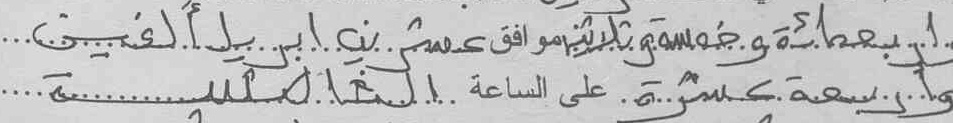 اربعمائة و خمسة و ثلاثين موافق عشرين ابريل ألفين
وأربعة عشرة على الساعة الخامسة